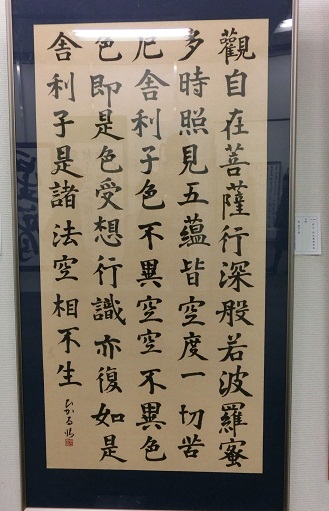 觀自在菩薩行深般若波羅蜜
多時照見五蘊皆空度一切苦
厄舍利子色不異空空不異色
色即是色受想行識亦復如是
舍利子是諸法空相不生